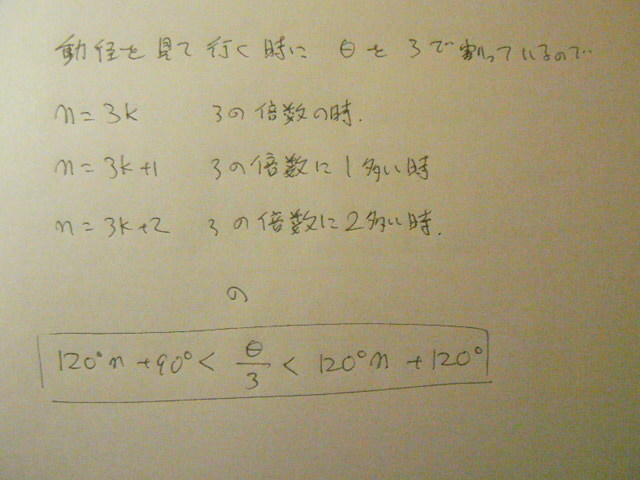 動径を見て行く時に θを3で割っているので‥
n=3k 3の倍数の時.
n=3k+1 3の倍数に1多い時
n=3k+2 3の倍数に2多い時.
の
120°n+90°< θ/3 < 120°n+120°